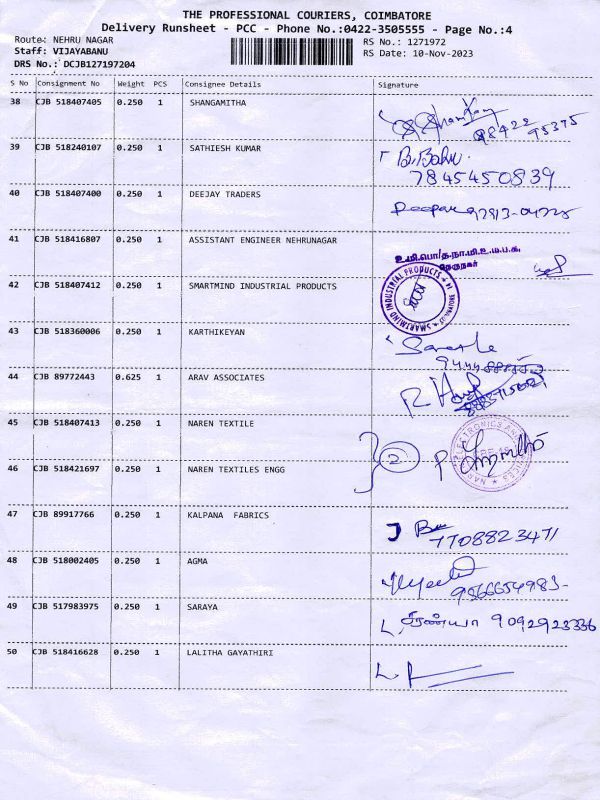 THE PROFESSIONAL COURIERS, COIMBATORE
Delivery Runsheet - PCC - Phone No.:0422-3505555 - Page No.:4
Route: NEHRU NAGAR
Staff: VIJAYABANU
DRS No.: DCJB127197204
RS No.: 1271972
RS Date: 10-Nov-2023
S No Consignment No Weight PCS Consignee Details Signature
38 CJB 518407405 0.250 1 SHANGAMITHA
98422 95375
39 CJB 518240107 0.250 1 SATHIESH KUMAR
B. Babu
7845450839
40 CJB 518407400 0.250 1 DEEJAY TRADERS
41 CJB 518416807 0.250 1 ASSISTANT ENGINEER NEHRUNAGAR
உ.மி.பொ/த.நா.மி.உ.ம.ப.க.
நேருநகர்
42 CJB 518407412 0.250 1 SMARTMIND INDUSTRIAL PRODUCTS
SMARTMIND INDUSTRIAL PRODUCTS
COIMBATORE
43 CJB 518360006 0.250 1 KARTHIKEYAN
44 CJB 89772443 0.625 1 ARAV ASSOCIATES
45 CJB 518407413 0.250 1 NAREN TEXTILE
2
46 CJB 518421697 0.250 1 NAREN TEXTILES ENGG
47 CJB 89917766 0.250 1 KALPANA FABRICS
7708823471
48 CJB 518002405 0.250 1 AGMA
9566654983-
49 CJB 517983975 0.250 1 SARAYA
சரண்யா 9092923336
50 CJB 518416628 0.250 1 LALITHA GAYATHIRI